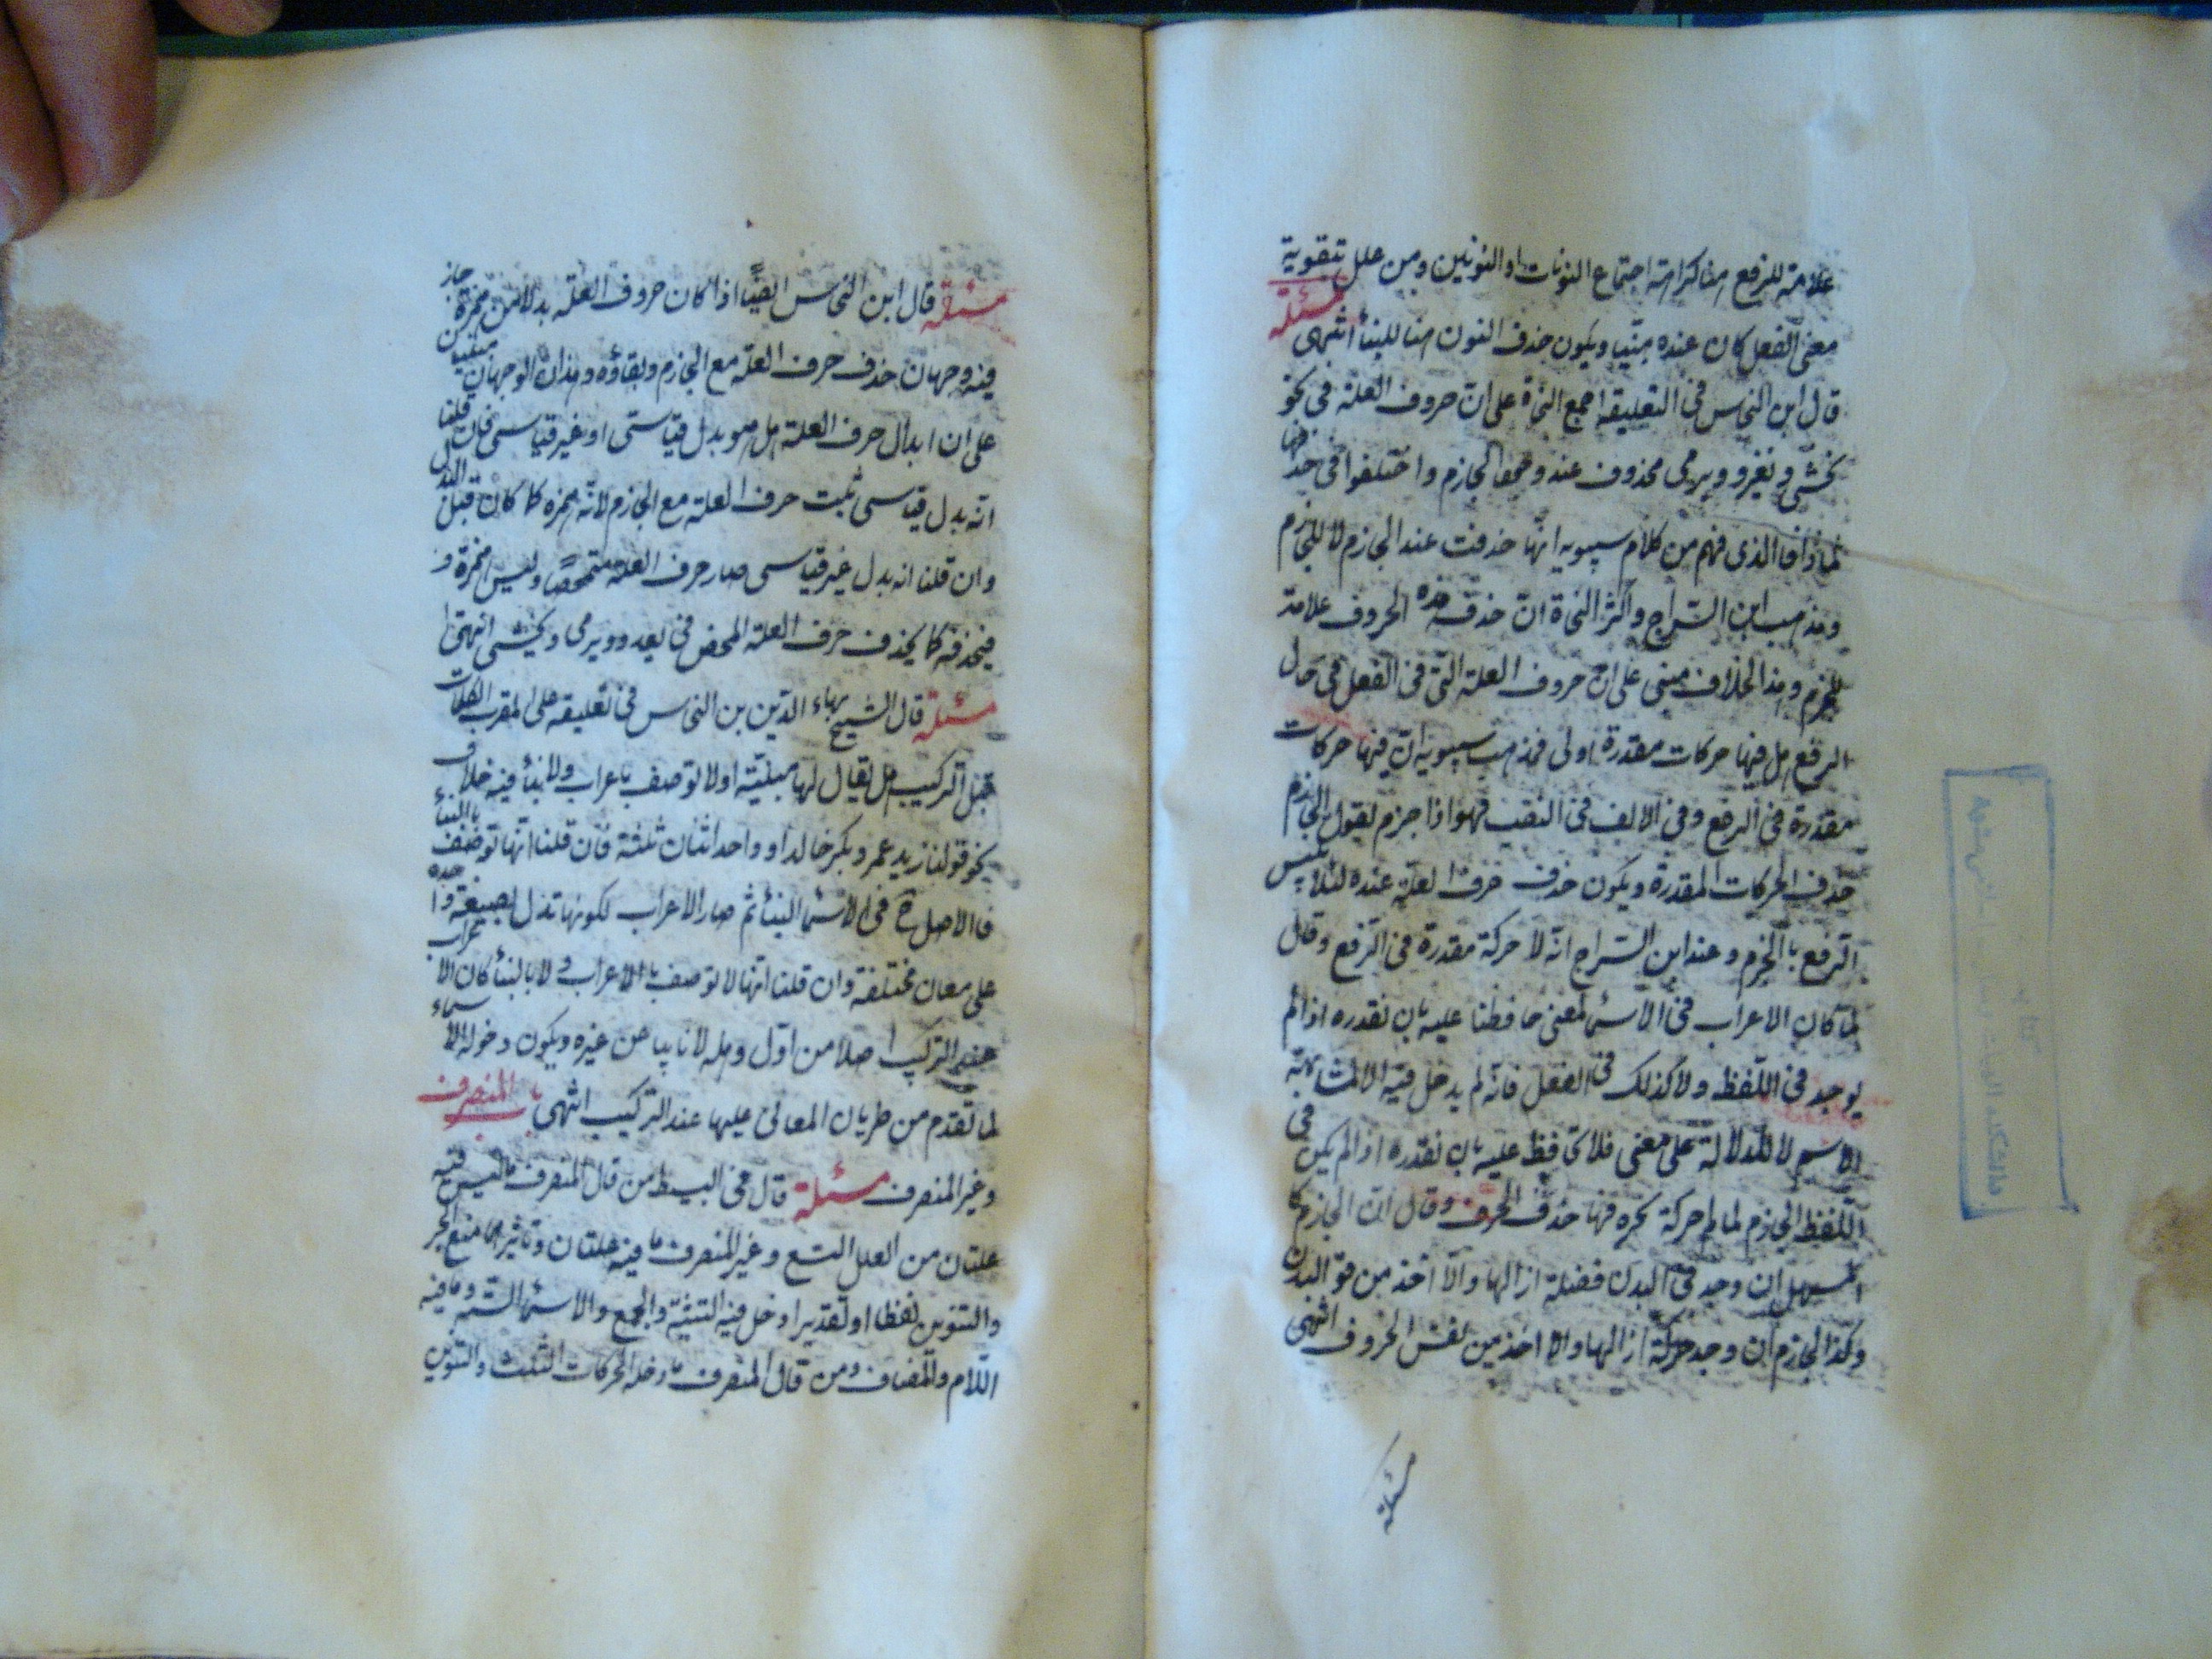 علامة للرفع هنا كراهة اجتماع النونات او النونين ومن علل بتقوية
معنى الفعل كان عنده مبنيا ويكون حذف النون هنا للبناء انتهى مسئلة
قال ابن النحاس فى التعليقة اجمع النحاة على ان حروف العلة فى نحو
يخشى ويغزو ويرمى محذوف عند وجود الجازم واختلفوا فى حذفها
لماذا فالذى فهم من كلام سيبويه انها حذفت عند الجازم لا للجازم
ومذهب ابن السراج واكثر النحاة ان حذف هذه الحروف علامة
للجزم وهذا الخلاف مبنى على ان حروف العلة التى فى الفعل فى حال
الرفع هل فيها حركات مقدرة اولى فمذهب سيبويه ان فيها حركات
مقدرة فى الرفع وفى الالف فى النصب فهو اذا جزم يقول الجازم
حذف الحركات المقدرة ويكون حذف حرف العلة عنده لئلا يلتبس
الرفع بالجزم وعند ابن السراج انه لا حركة مقدرة فى الرفع وقال
لما كان الاعراب فى الاسماء لمعنى حافظنا عليه بان نقدره اذا لم
يوجد فى اللفظ ولا كذلك فى الفعل فانه لم يدخل فيه الا لمشابهة
الاسم لا للدلالة على معنى فلا نحافظ عليه بان نقدره اذا لم يكن فى
اللفظ الجازم لما لم حركة حذف الحرف وقال ان الجازم كا
المسهل ان وجد فى البدن فضلة ازالها والا اخذ من قوى البدن
وكذا الجازم ان وجد حركة ازالها والا اخذ من نفس الحروف انتهى
مسئلة
مسئلة قال ابن النحاس ايضًا اذا كان حروف العلة بدلا من همزة جاز
فيه وجهان حذف حرف العلة مع الجازم وبقاؤه وهذان الوجهان مبنيا
على ان ابدال حرف العلة هل هو بدل قياسى او غير قياسى فان قلنا
انه بدل قياسى ثبت حرف العلة مع الجازم لانه همزة كما كان قبل البدل
وان قلنا انه بدل غير قياسى صار حرف العلة متمحضًا وليس همزة و
فيحذفه كما يحذف حرف العلة المحض فى يغدو ويرمى ويخشى انتهى
مسئلة قال الشيخ بهاء الدين بن النحاس فى تعليقه على المقرب الكلمات
قبل التركيب هل يقال لها مبنية اولا توصف باعراب ولا بناء فيه خلاف
نحو قولنا زيد عمرو بكر خالد او واحد اثنان ثلثة فان قلنا انها توصف بالبناء
فالاصل ح فى الاسماء البناء ثم صار الاعراب لكونها تدل بصيغة واحدة
على معان مختلفة وان قلنا انها لا توصف بالاعراب ولا بالبناء كان الاعراب
عند التركيب اصلا من اول وهلة لا نايبا عن غيره ويكون دخوله الاسماء
لما تقدم من طريان المعانى عليها عند التركيب انتهى باب المنصرف
وغير المنصرف مسئلة قال فى البسيط من قال المنصرف ما ليس فيه
علتان من العلل التسع وغير المنصرف ما فيه علتان وتاثيرهما منع الجر
والتنوين لفظا او تقديرا دخل فيه التثنية والجمع والاسماء الستة وما فيه
اللام والمضاف ومن قال المنصرف ما دخله الحركات الثلث والتنوين